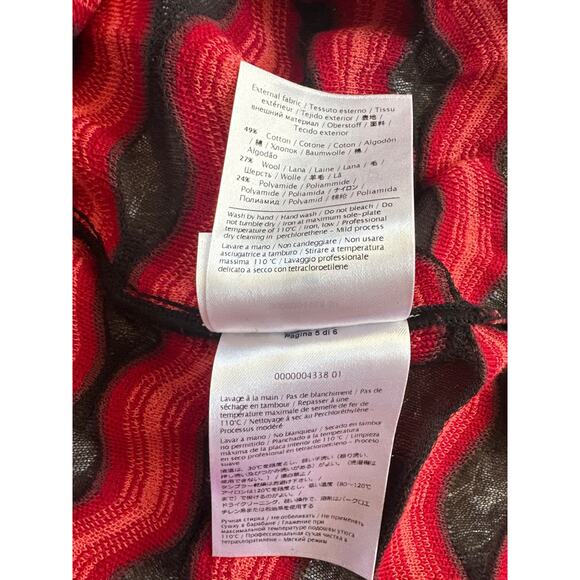 External fabric / Tessuto esterno / Tissu
extérieur / Tejido exterior / 表地 /
внешний материал / Oberstoff / 面料 /
Tecido exterior
49% Cotton / Cotone / Coton / Algodón
/ 綿 / Хлопок / Baumwolle / 棉 /
Algodão
27% Wool / Lana / Laine / Lana / 毛 /
Шерсть / Wolle / 羊毛 / Lã
24% Polyamide / Poliammide /
Polyamide / Poliamida / ナイロン /
Полиамид / Polyamid / 锦纶 / Poliamida
Wash by hand / Hand wash / Do not bleach / Do
not tumble dry / Iron at maximum sole-plate
temperature of 110°C / Iron, low / Professional
dry cleaning in perchlorethene - Mild process
Lavare a mano / Non candeggiare / Non usare
asciugatrice a tamburo / Stirare a temperatura
massima 110°C / Lavaggio professionale
delicato a secco con tetracloroetilene
Pagina 5 di 6
0000004338 01
Lavage à la main / Pas de blanchiment / Pas de
séchage en tambour / Repasser à une
température maximale de semelle de fer de
110°C / Nettoyage à sec au Perchloréthylène -
Processus modéré
Lavar a mano / No blanquear / Secado en tambor
no permitido / Planchado a la temperatura
máxima de la placa inferior de 110°C / Limpieza
en seco profesional en percloroetileno - Proceso
suave
液温は、30℃を限度とし、弱い手洗い
タンブラー乾燥はお避け下さい。/ 低い温度 (80~120℃
アイロンは120℃を限度とし、
まで) で掛けるのがよい。
ドライクリーニング、弱い操作で、溶剤はパークロロエ
チレン系または石油系を使用する
Ручная стирка / Не отбеливать / Не применять
сушку в барабане / Глажение при
максимальной температуре подошвы утюга
110°C / Профессиональная сухая чистка в
тетрахлорэтилене - Мягкий режим